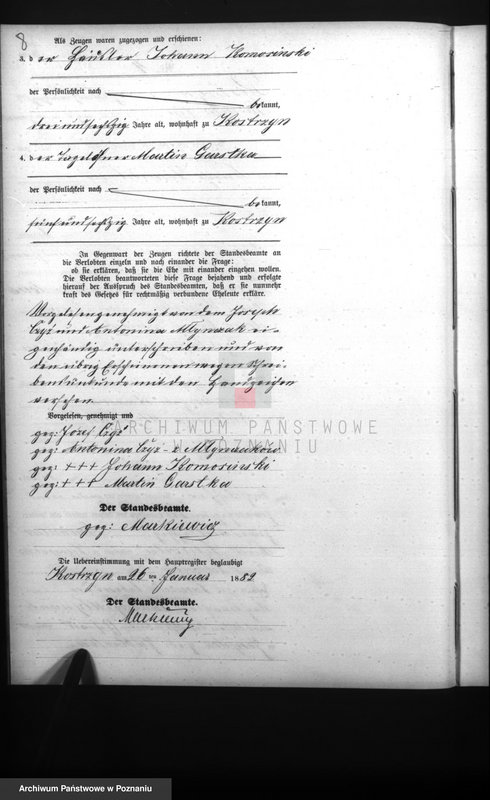 8
Als Zeugen waren zugezogen und erschienen:
3. der Häusler Johann Komosinski
der Persönlichkeit nach
bekannt,
dreiundsechzig Jahre alt, wohnhaft zu Kostrzyn
4. der Tagelöhner Martin Garstka
der Persönlichkeit nach
bekannt,
fünfundsechzig Jahre alt, wohnhaft zu Kostrzyn
In Gegenwart der Zeugen richtete der Standesbeamte an
die Verlobten einzeln und nach einander die Frage:
ob sie erklären, daß sie die Ehe mit einander eingehen wollen.
Die Verlobten beantworteten diese Frage bejahend und erfolgte
hierauf der Ausspruch des Standesbeamten, daß er sie nunmehr
kraft des Gesetzes für rechtmäßig verbundene Eheleute erkläre.
Vorgelesen genehmigt von dem Joseph
Czyż und Antonina Mlynarek ei-
genhändig unterschrieben und von
den übrig Erschienenen wegen Schrei-
bensunkunde mit den Handzeichen
versehen.
Vorgelesen, genehmigt und
gez: Józef Czyż
gez: Antonina Czyż z Mlynarków
gez: +++ Johann Komosinski
gez: +++ Martin Garstka
Der Standesbeamte.
gez: Markiewicz
Die Uebereinstimmung mit dem Hauptregister beglaubigt
Kostrzyn am 26 ten Januar 1882
Der Standesbeamte.
Markiewicz
ARCHIWUM PAŃSTWOWE
W POZNANIU
Archiwum Państwowe w Poznaniu